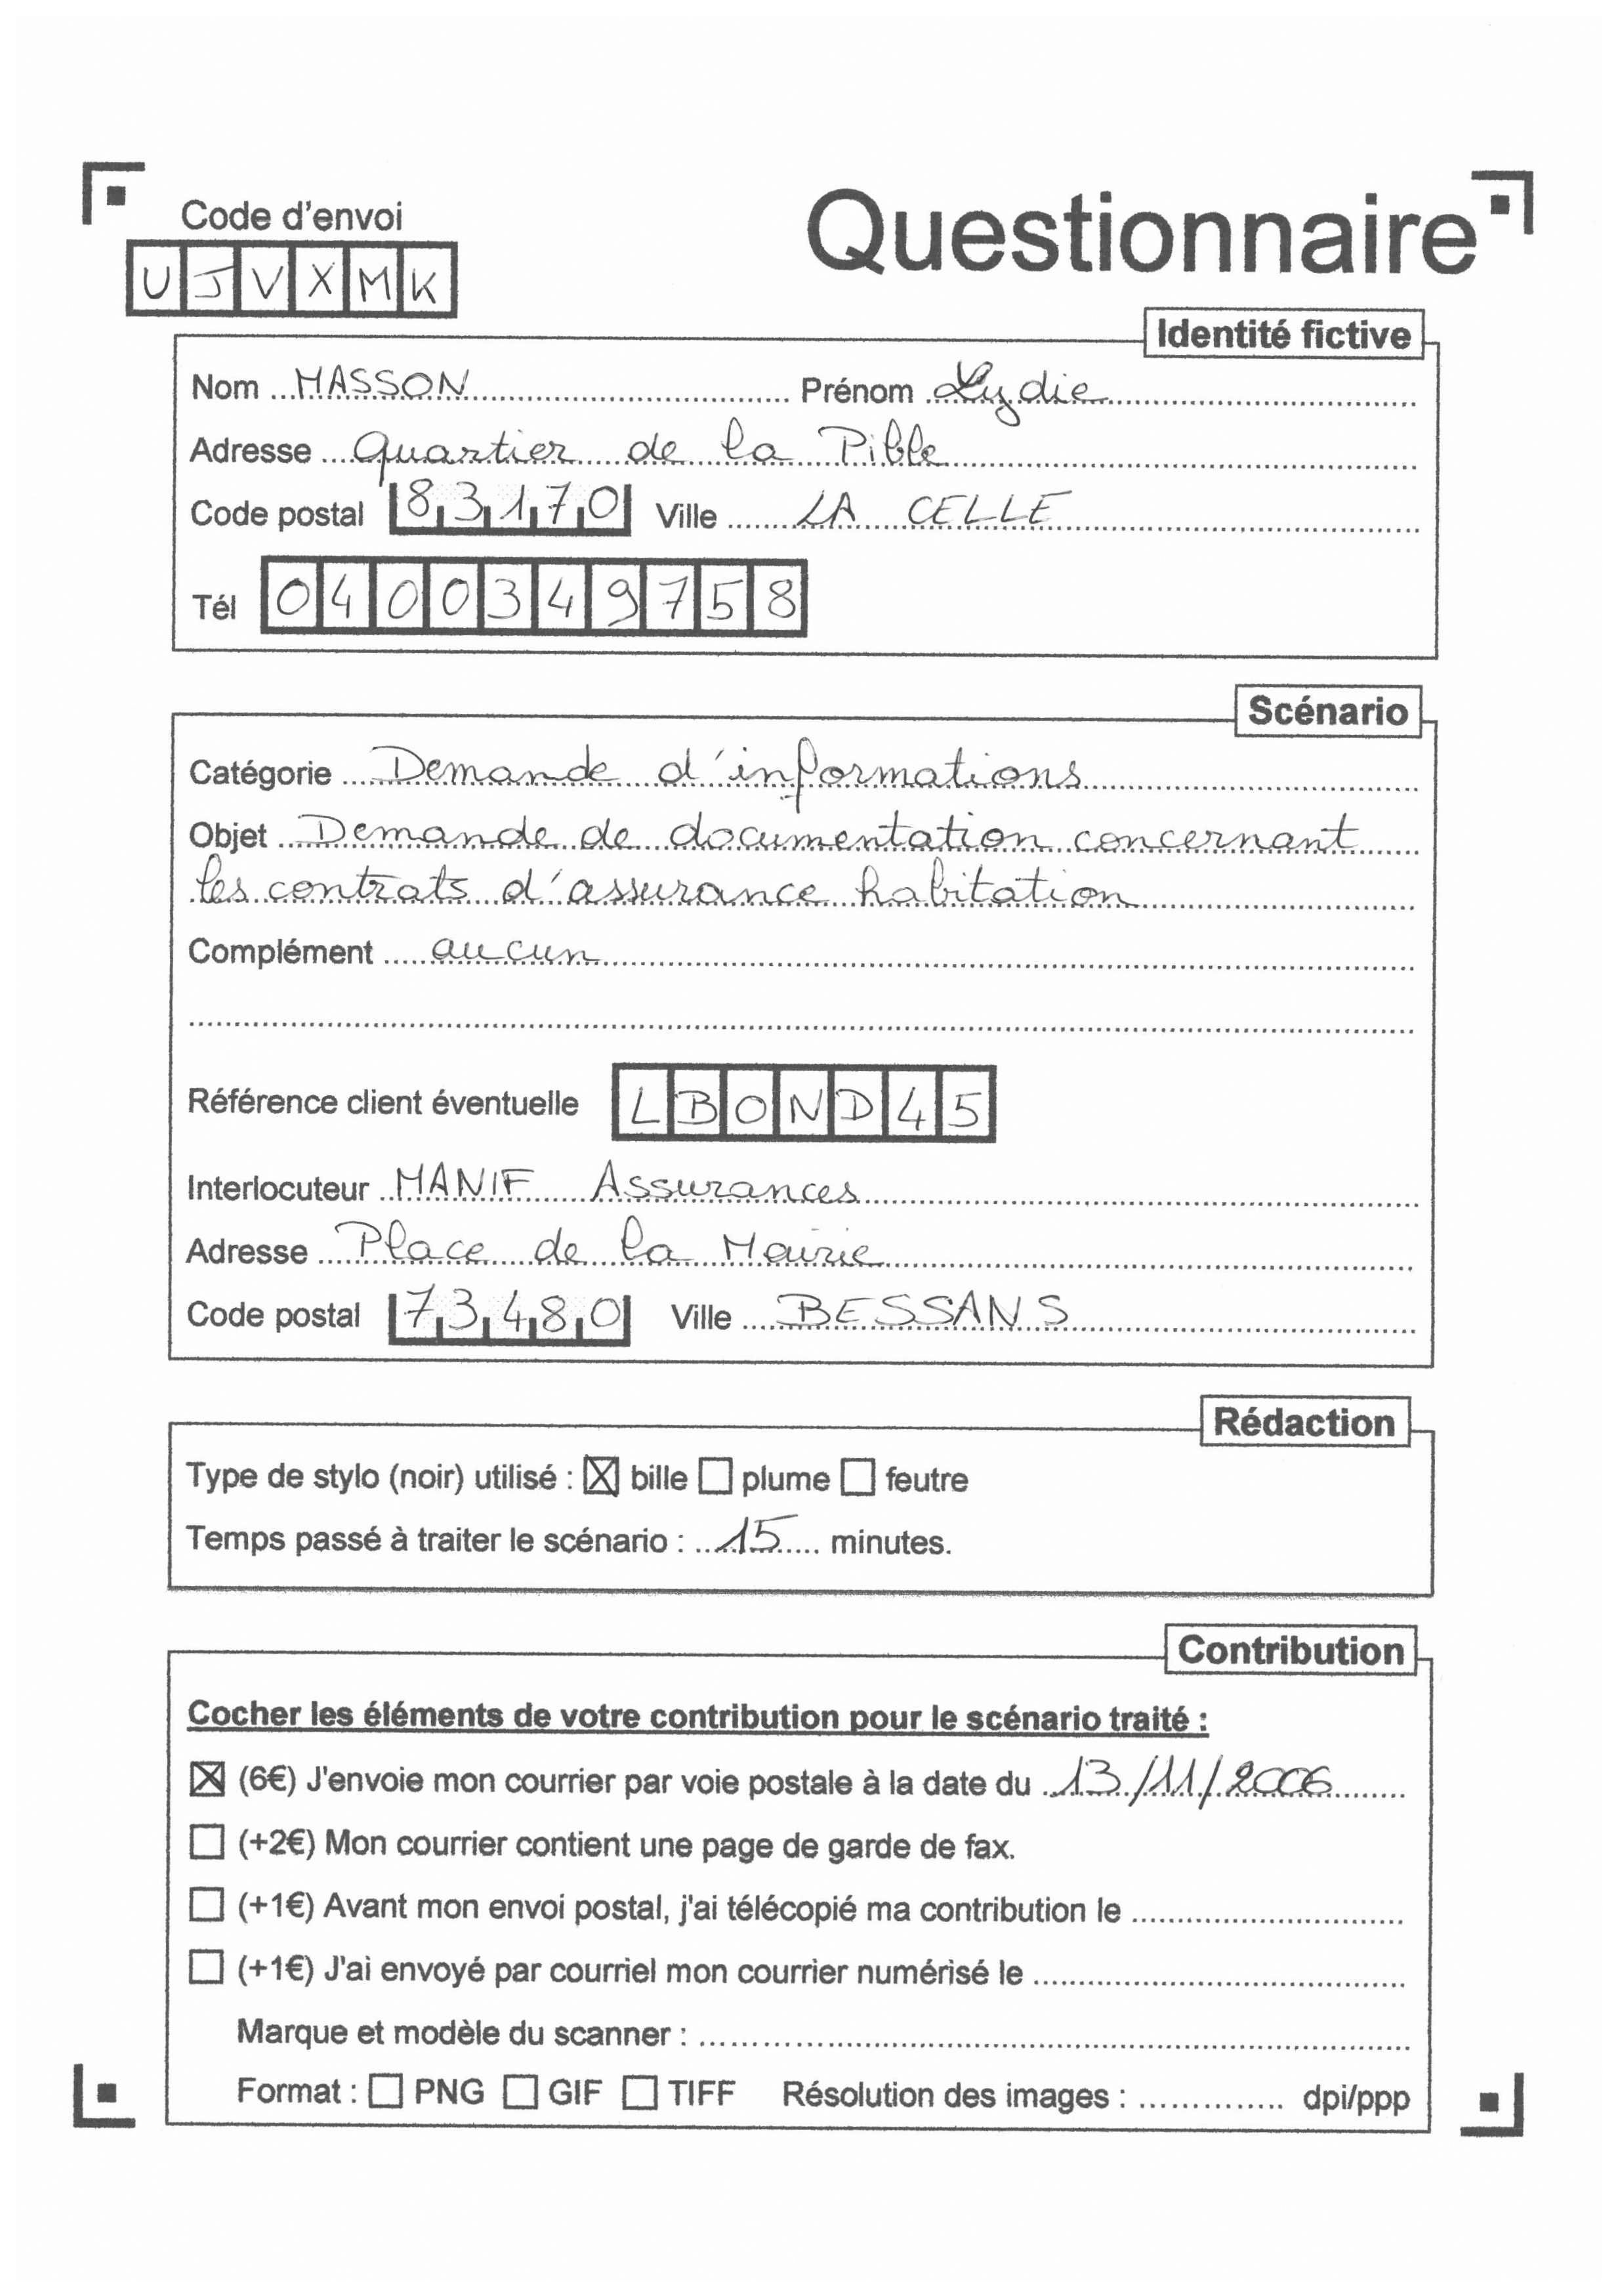 Code d'envoi
Questionnaire
UJVXMK
Identité fictive
Nom MASSON Prénom Lydie
Adresse Quartier de la Pible
Code postal 83170 Ville LA CELLE
Tél 0400349758
Scénario
Catégorie Demande d'informations
Objet Demande de documentation concernant
les contrats d'assurance habitation
Complément aucun
Référence client éventuelle LBOND45
Interlocuteur MANIF Assurances
Adresse Place de la Mairie
Code postal 73480 Ville BESSANS
Rédaction
Type de stylo (noir) utilisé : ☒ bille ☐ plume ☐ feutre
Temps passé à traiter le scénario : 15 minutes.
Contribution
Cocher les éléments de votre contribution pour le scénario traité :
☒ (6€) J'envoie mon courrier par voie postale à la date du 13/11/2006
☐ (+2€) Mon courrier contient une page de garde de fax.
☐ (+1€) Avant mon envoi postal, j'ai télécopié ma contribution le
☐ (+1€) J'ai envoyé par courriel mon courrier numérisé le
Marque et modèle du scanner :
Format : ☐ PNG ☐ GIF ☐ TIFF Résolution des images : dpi/ppp